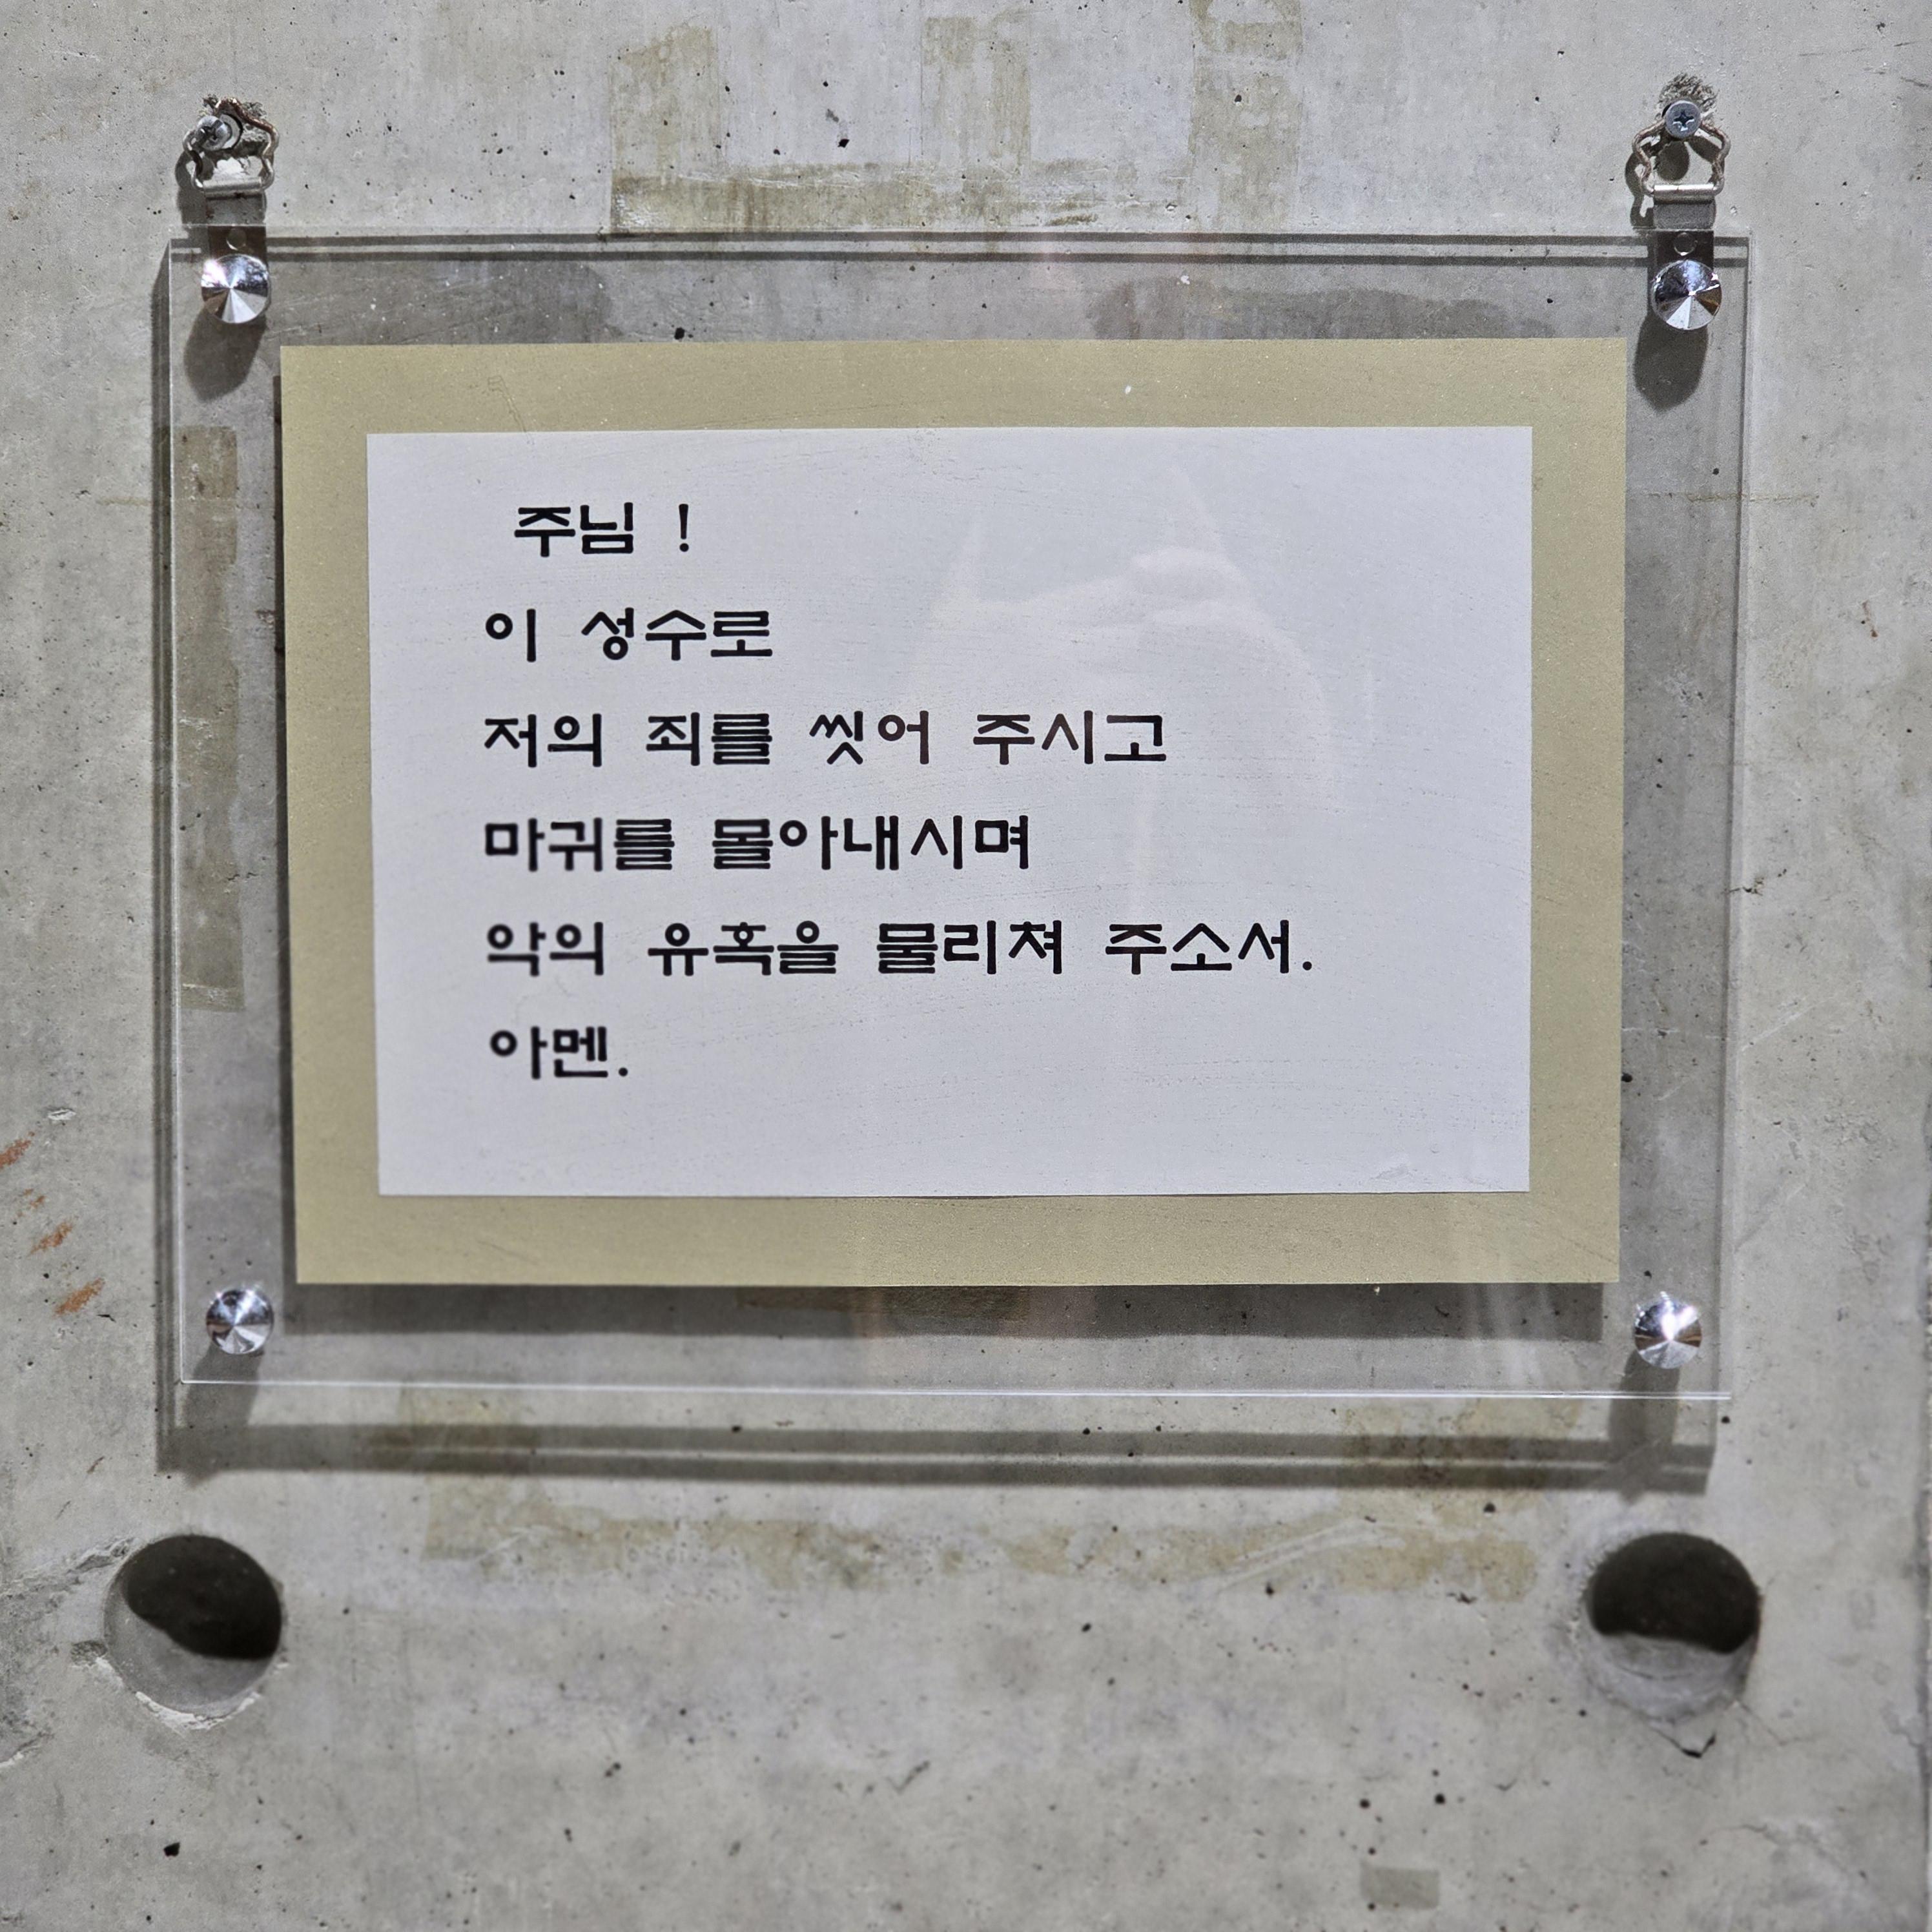 주님 !
이 성수로
저의 죄를 씻어 주시고
마귀를 몰아내시며
악의 유혹을 물리쳐 주소서.
아멘.